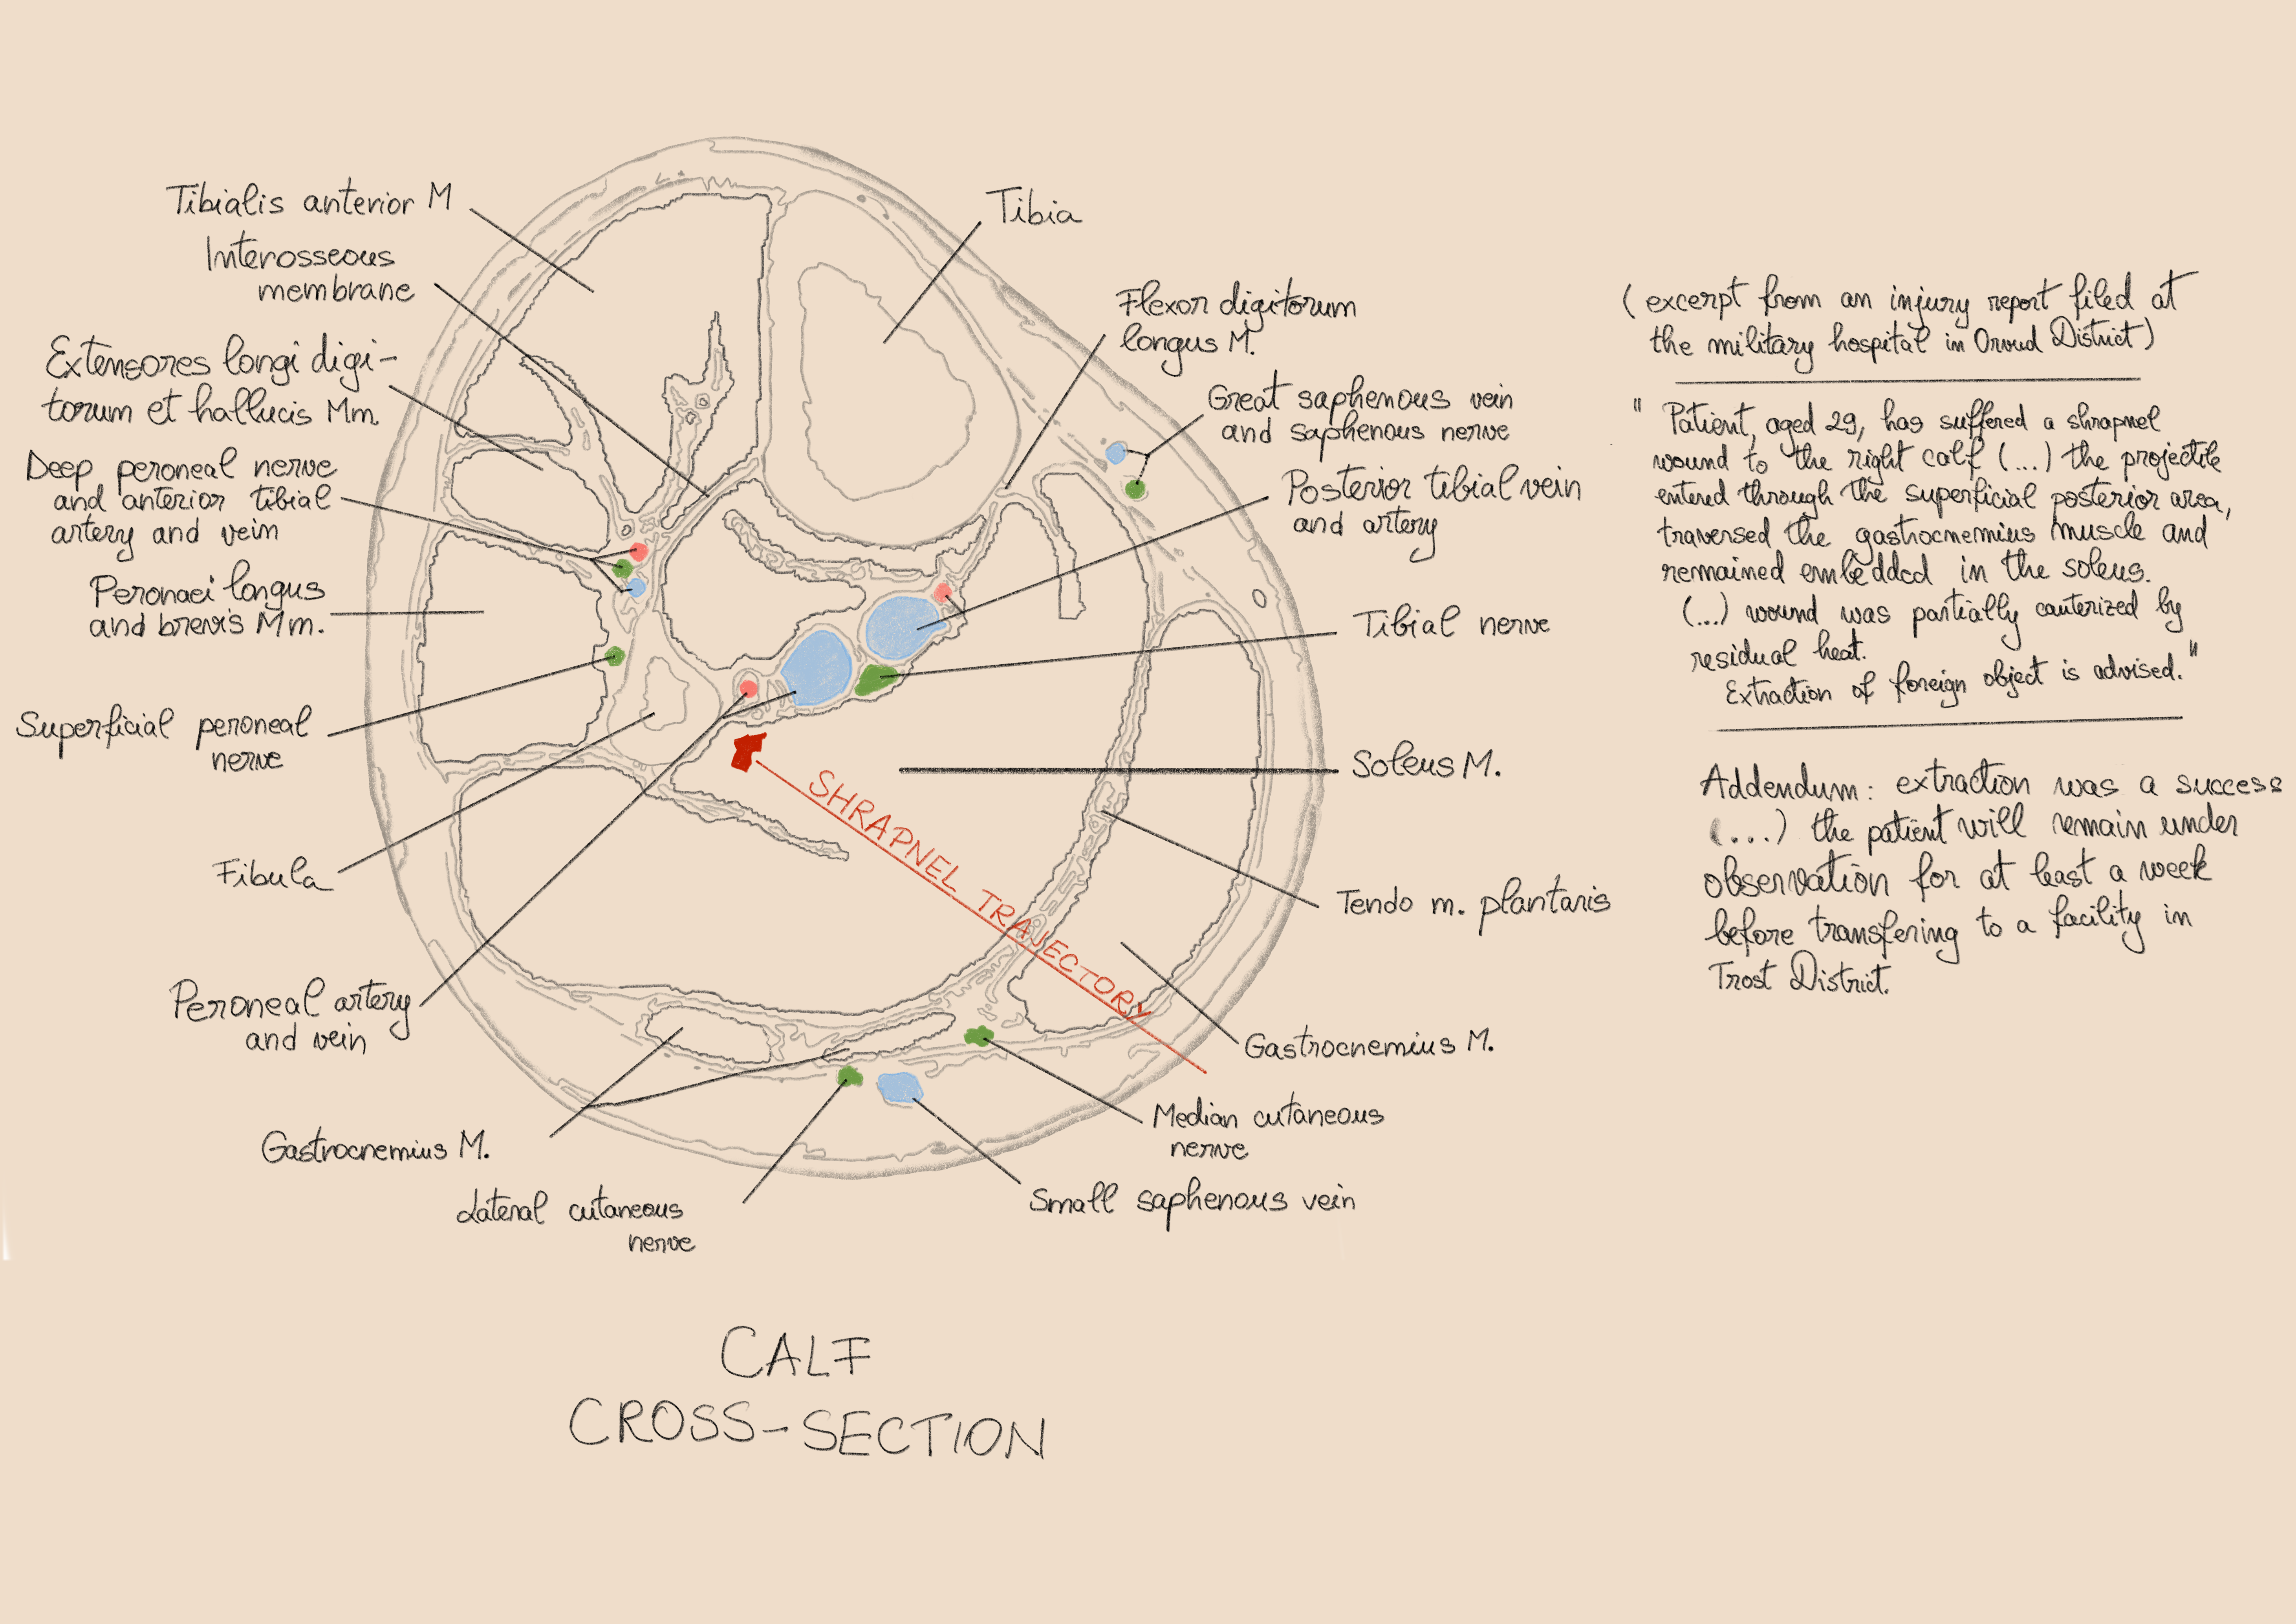 Tibialis anterior M
Interosseous
membrane
Extensores longi digi-
torum et hallucis Mm.
Deep peroneal nerve
and anterior tibial
artery and vein
Peronaei longus
and brevis Mm.
Superficial peroneal
nerve
Fibula
Peroneal artery
and vein
Gastrocnemius M.
Lateral cutaneous
nerve
Tibia
Flexor digitorum
longus M.
Great saphenous vein
and saphenous nerve
Posterior tibial vein
and artery
Tibial nerve
Soleus M.
Tendo m. plantaris
Gastrocnemius M.
Median cutaneous
nerve
Small saphenous vein
SHRAPNEL TRAJECTORY
CALF
CROSS-SECTION
(excerpt from an injury report filed at
the military hospital in Orvud District)
" Patient, aged 29, has suffered a shrapnel
wound to the right calf (...) the projectile
entered through the superficial posterior area,
traversed the gastrocnemius muscle and
remained embedded in the soleus.
(...) wound was partially cauterized by
residual heat.
Extraction of foreign object is advised."
Addendum: extraction was a success
(...) the patient will remain under
observation for at least a week
before transfering to a facility in
Trost District.